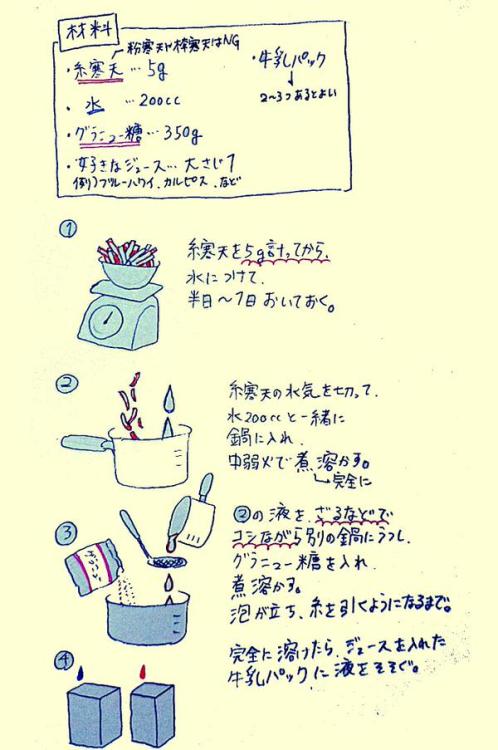 材料
粉寒天や棒寒天はNG
・糸寒天…5g
・水 …200cc
・グラニュー糖…350g
・好きなジュース…大さじ1
(例)ブルーハワイ、カルピス、など
・牛乳パック
2~3つあるとよい
①
糸寒天を5g計ってから、
水につけて、
半日~1日おいておく。
②
糸寒天の水気を切って、
水200ccと一緒に
鍋に入れ、
中弱火で煮溶かす。
完全に
③
②の液を、ざるなどで
コシながら別の鍋にうつし、
グラニュー糖を入れ、
煮溶かす。
泡が立ち、糸を引くようになるまで。
④
完全に溶けたら、ジュースを入れた
牛乳パックに液をそそぐ。